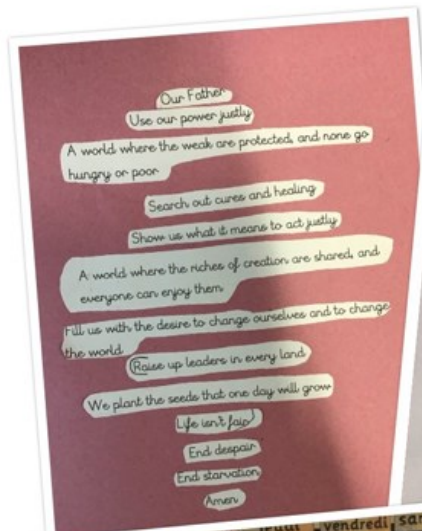 Our Father
Use our power justly
A world where the weak are protected, and none go
hungry or poor
Search out cures and healing
Show us what it means to act justly
A world where the riches of creation are shared, and
everyone can enjoy them
Fill us with the desire to change ourselves and to change
the world
Raise up leaders in every land
We plant the seeds that one day will grow
Life isn't fair
End despair
End starvation
Amen
vendredi